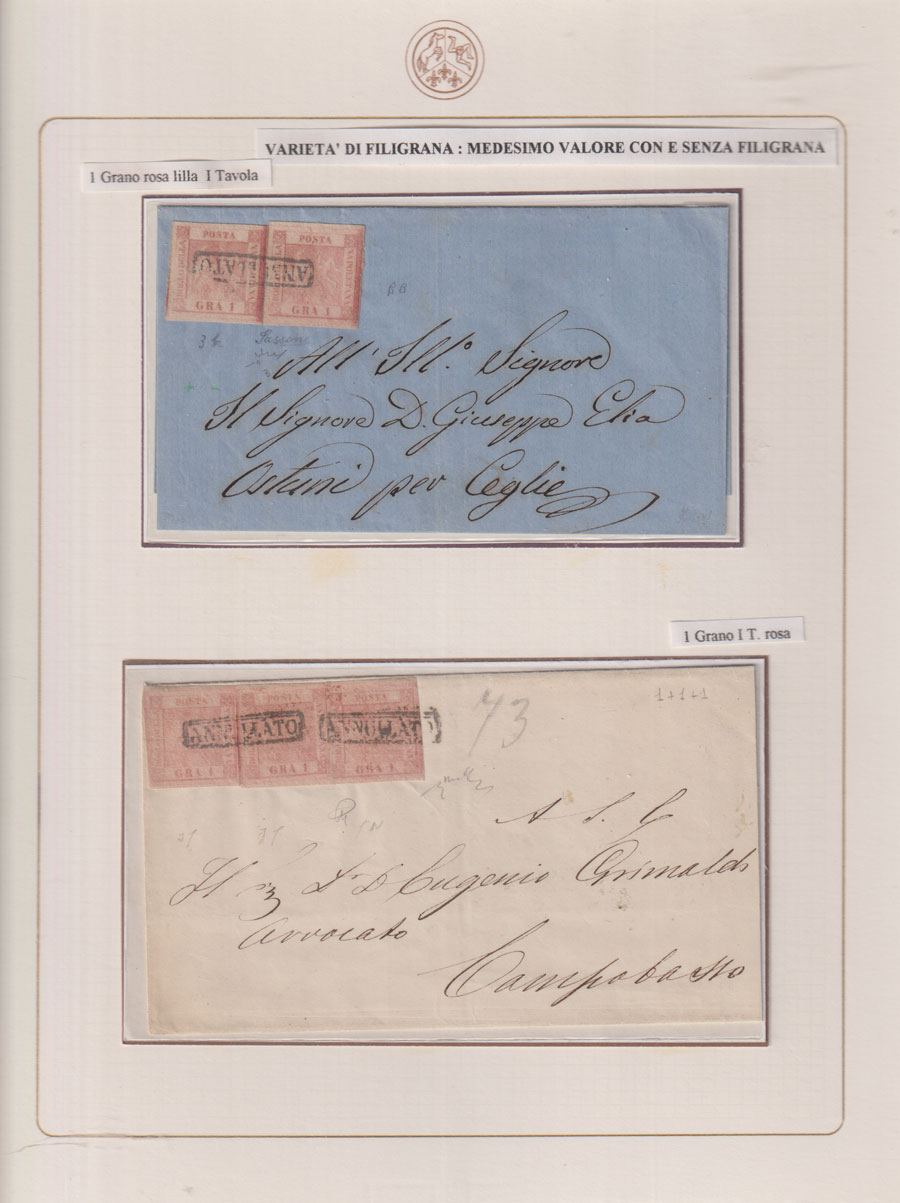 VARIETA' DI FILIGRANA : MEDESIMO VALORE CON E SENZA FILIGRANA
1 Grano rosa lilla I Tavola
POSTA POSTA
BOLLO DELLA NAPOLETANA
ANNULLATO
GRA 1 GRA 1
BB
All' Ill.º Signore
Il Signore D. Giuseppe Elia
Ostuni per Ceglie
1 Grano I T. rosa
1+1+1
POSTA POSTA POSTA
ANNULLATO ANNULLATO
GRA 1 GRA 1 GRA 1
73
A S. E
Il Sig D. Eugenio Grimaldi
Avvocato
Campobasso